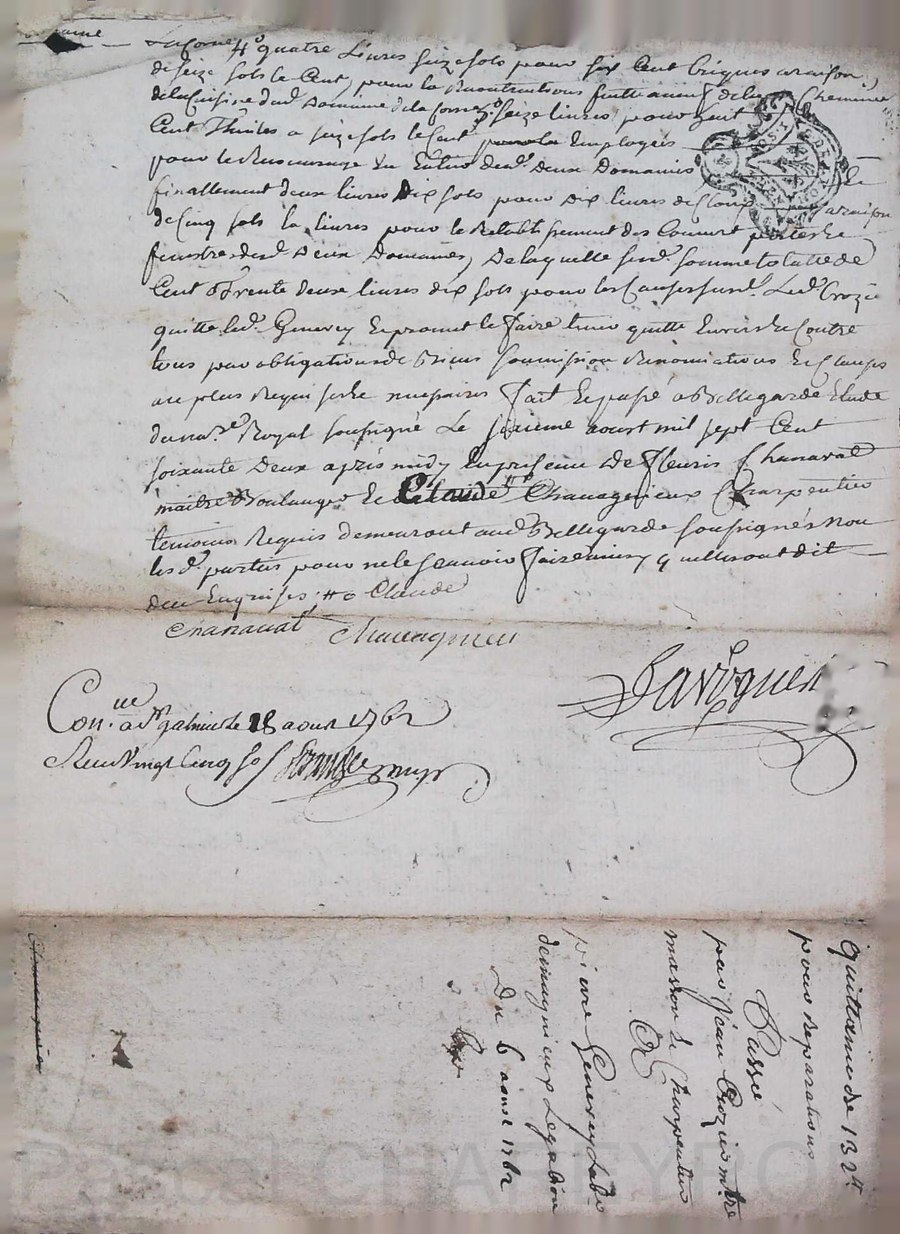 4° quatre Livres seize sols pour six Cent briques araison
de seize sols le Cent, pour la Reconstructions faitte de la Cheminée
de la Cuisine dud. Domaine de la forest 5° seize livres pour
Cent Thuiles a seize sols le Cent Employés
pour le Domaines
finallement deux livres dix sols pour dix livres de Cloux araison
de Cinq sols la livres pour le Retablissement des Couverts
fenestre desd. Deux Domaines, De laquelle susd. somme totalle de
Cent Trente deux livres dix sols pour les Causes susd. Led. Crozier
quitte led. Genevey Et promet le faire tenir quitte Envers Et Contre
tous par obligations de Biens soumission Renonciations Et Clauses
au plus Requises Fait Et passé a Bellegarde Etude
du no.re Royal soussigné Le sixieme aoust mil sept Cent
soixante Deux après midy En presence De Fleuris Chanavat
maitre Boulanger Et Claude Chavagnieux Charpentier
temoins Requis demeurant aud. Bellegarde soussignés Non
les d. parties pour ne le scavoir faire qu'elles ont dit
Enquises Claude
Chanavat Chavagnieu
Con.lle a St galmier le 18 aoust 1762
Receu Vingt Cinq sols
quittance de 132#
pour reparations
Passé
par Jean Crozier mtre
masson Et Charpentier
A
pierre Genevey
Du 6 aoust 1762
Pascal CHAPEYRON